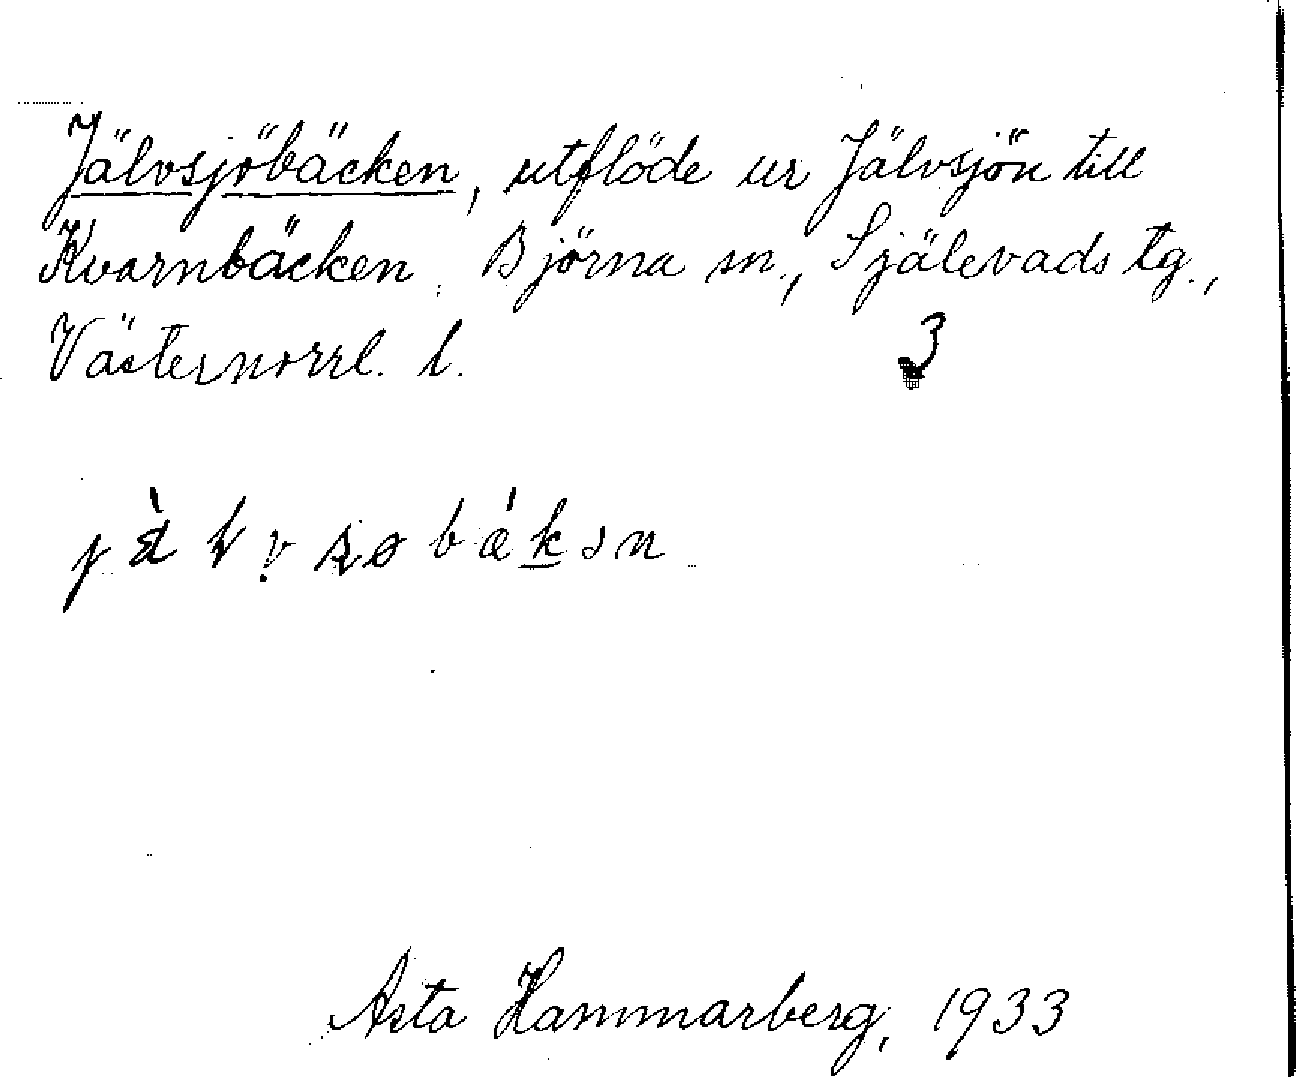 Jälvsjöbäcken, utflöde ur Jälvsjön till
Kvarnbäcken. Björna sn., Själevads tg.,
Västernorrl. l.
3
Asta Hammarberg, 1933